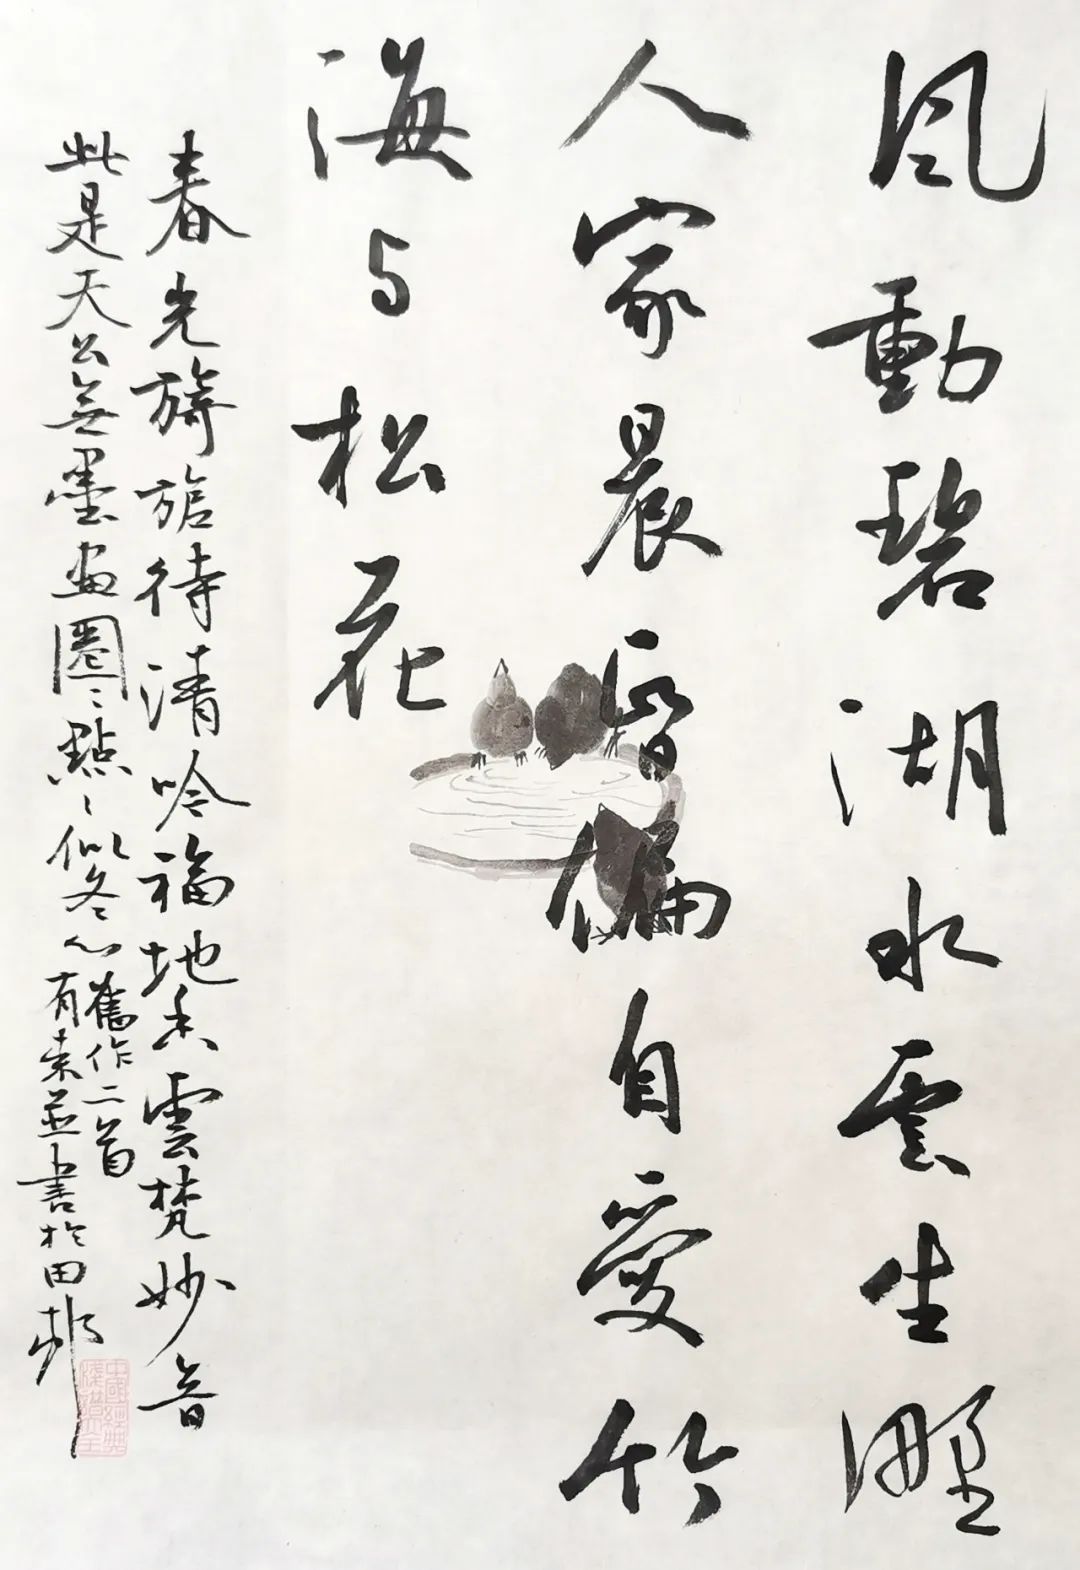 風動碧湖水雲生野
人家晨昏偏自愛竹
海与松花
春光旖旎待清吟福地香雲梵妙音
此是天公無墨画圈々點々似冬心
舊作二首
有索並書於田邨
中國經典